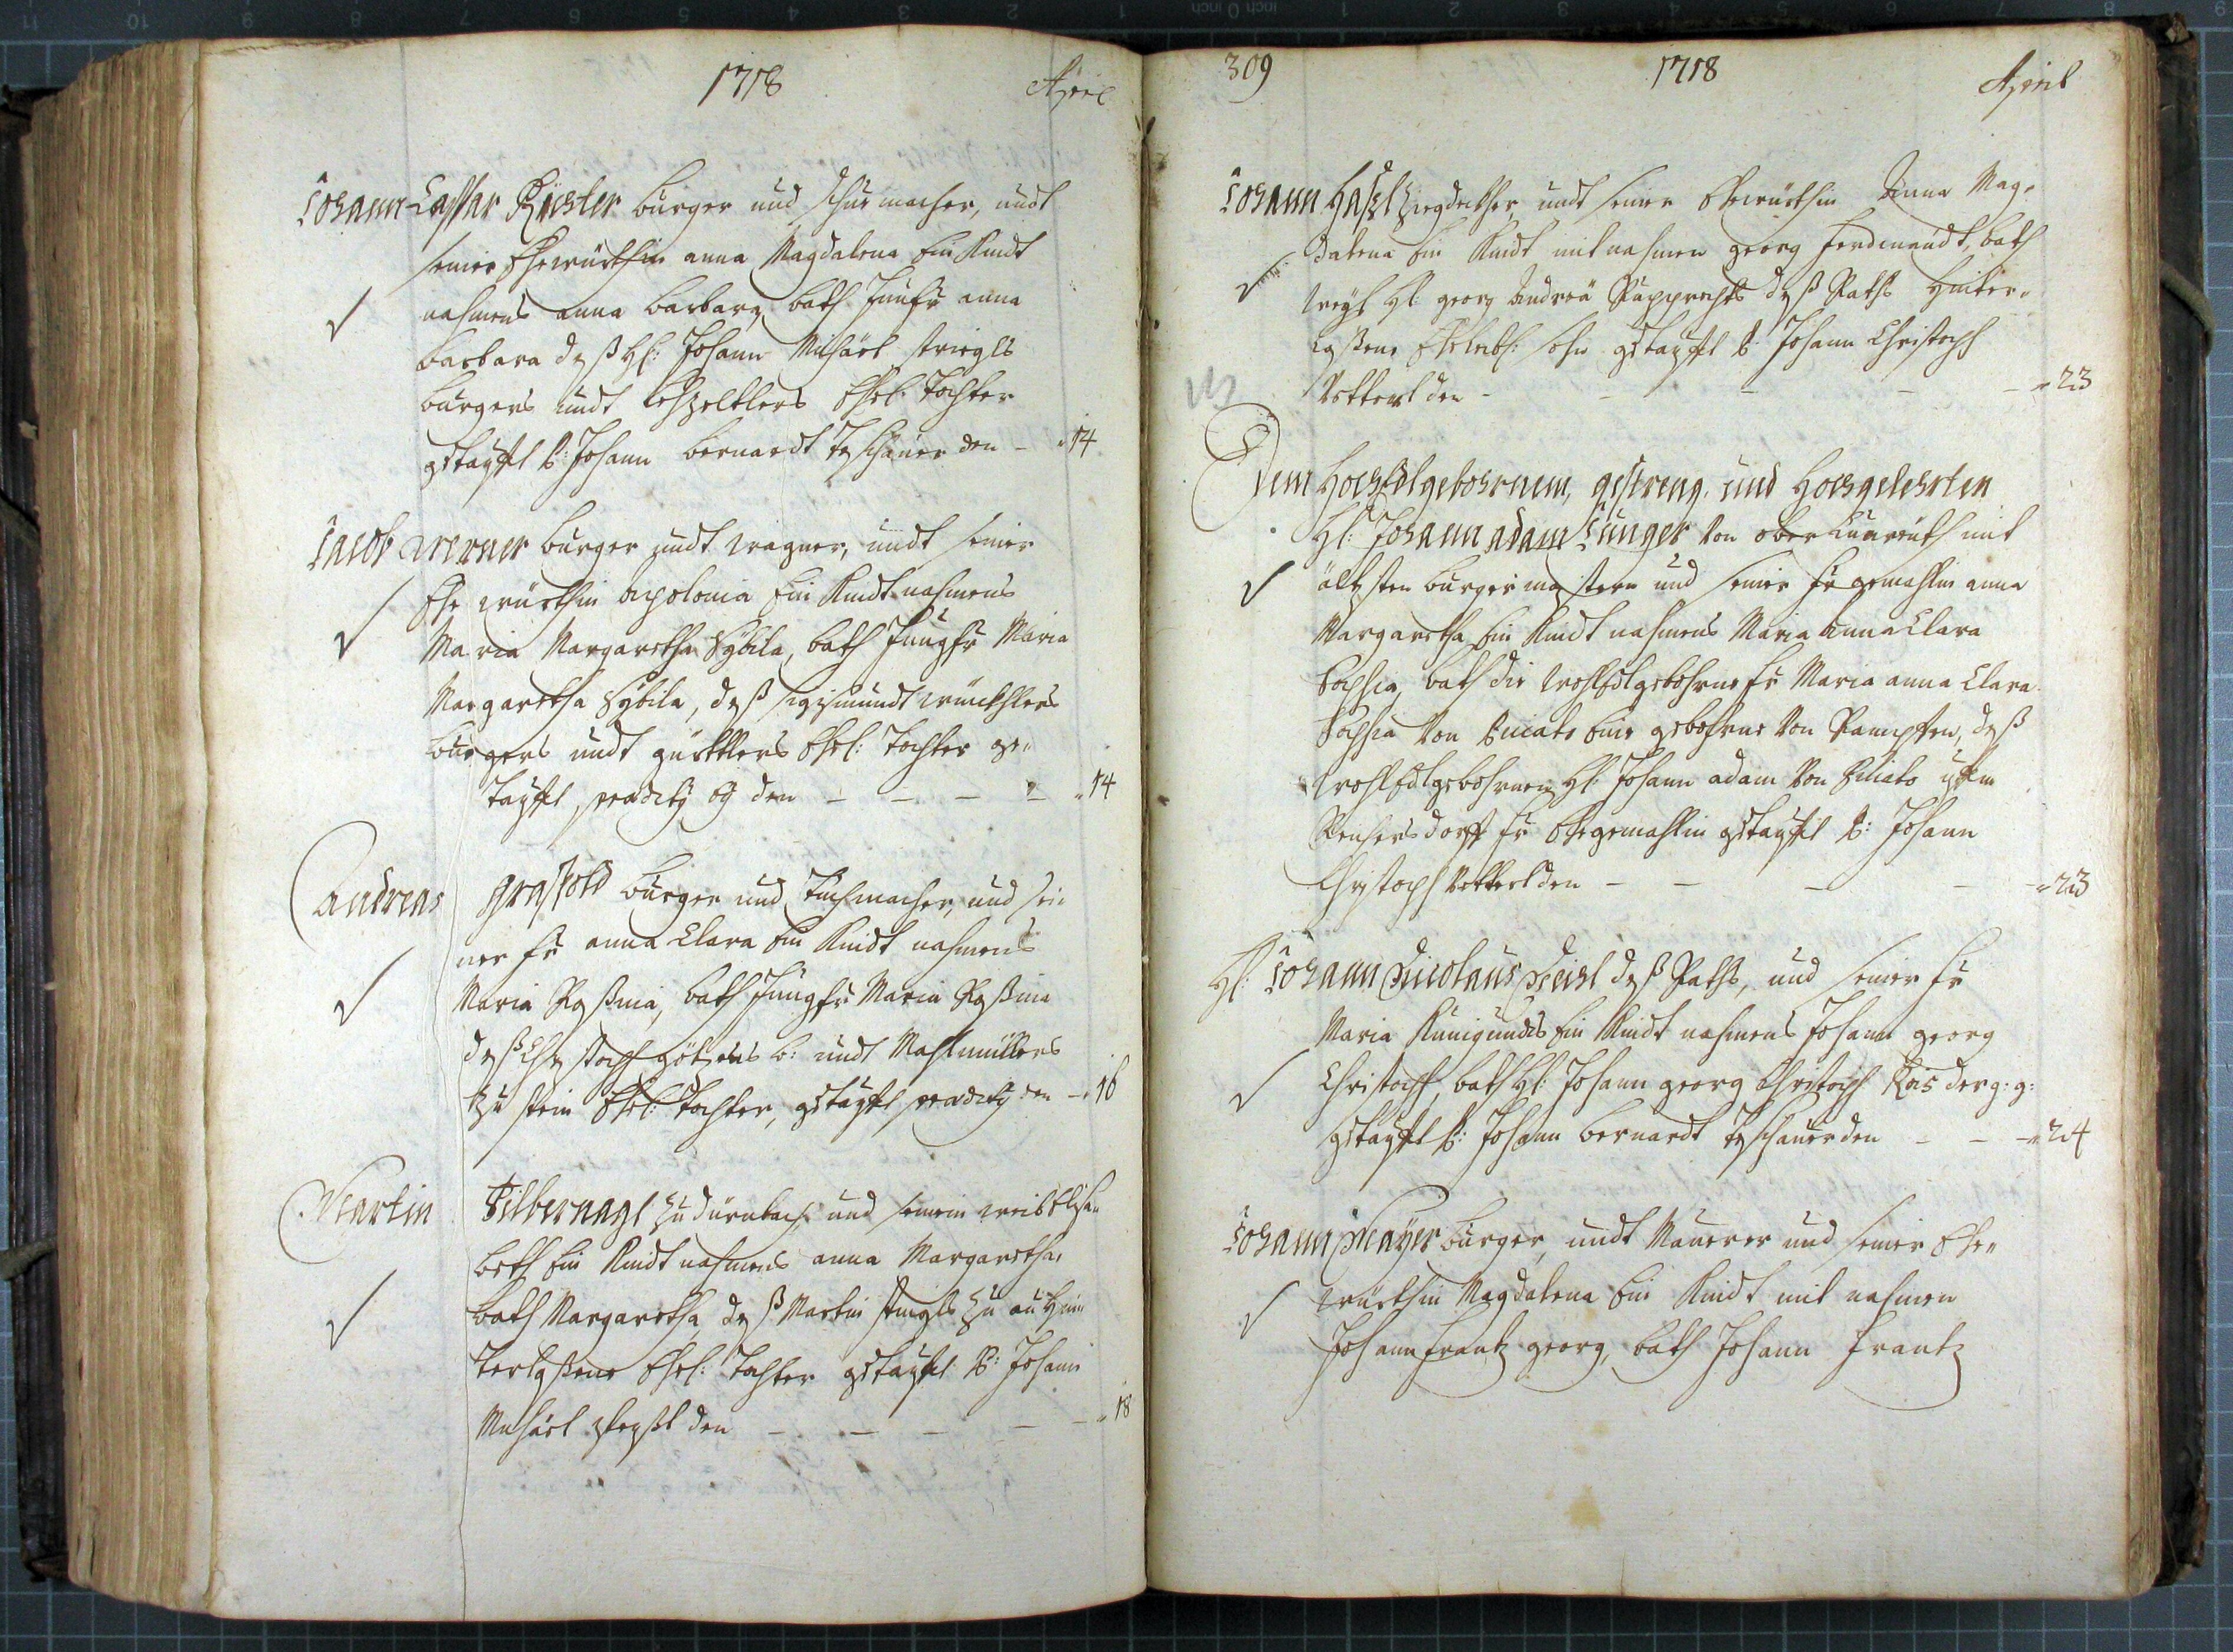 1718 April
Johann Caspar Richter burger und schuemacher, undt
seiner Ehewürthin anna Magdalena Ein Kindt
nahmens anna barbara, bath Junfr anna
barbara deß H: Johann Michäel striegls
burgers undt Lehzeltlers Ehel: Tochter
getaufft P: Johann bernardt den - 14
Jacob Werner burger undt wagner, undt seiner
Ehe würthin apolonia Ein Kindt nahmens
Maria Margaretha Sybila, bath Jungfr Maria
Margaretha Sybila, deß sigismundt
burgers undt gürttlers Ehel: Tochter ge=
taufft, praedicty os den - - - - 14
Andreas burger und Tuchmacher, und sei
ner fr anna Clara Ein Kindt nahmens
Maria Roßina, bath Jungfr Maria Roßina
deß Christoph b: undt Mahlmüllers
zu stein Ehel: Tochter, getaufft praedicty den - 16
Martin Silbernagl zu dürnbach und seinem weib Elisa=
beth Ein Kindt nahmens anna Margaretha,
bath Margaretha, deß Martin zu au hin=
terlaßene Ehel: Tochter getaufft P: Johann
Michäel den - - - - - 18
309 1718 April
Johann Häszl undt seiner Ehewürthin Anna Mag=
dalena Ein Kindt mit nahmen georg ferdinandt, bath
weyl H: georg Andreä Rupprechts deß Raths hinter=
laßene Eheleibl: sohn getaufft P: Johann Christoph
Vetterl den - - - - - 23
Dem HochEdlgebohrnem, gestreng. und Hochgelehrten
H: Johann adam Junger Von ober mit
ältesten burgermaistern und seiner fr gemahlin anna
Margaretha Ein Kindt nahmens Maria Anna Clara
Sophia, bath die wohlEdlgebohrne fr Maria anna Clara
Sophia Von eine gebohrne Von deß
wohlEdlgebohrnen H: Johann adam Von
fr Ehegemahlin getaufft P: Johann
Christoph Vetterl den - - - - - 23
H: Johann Nicolaus deß Raths, und seiner fr
Maria Kunigundis Ein Kindt nahmens Johann georg
Christoph, bath H: Johann georg Christoph
getaufft P: Johann bernardt den - - - 24
Johann Mayer burger, undt Maurer und seiner Ehe=
würthin Magdalena Ein Kindt mit nahmen
Johann frantz georg, bath Johann frantz